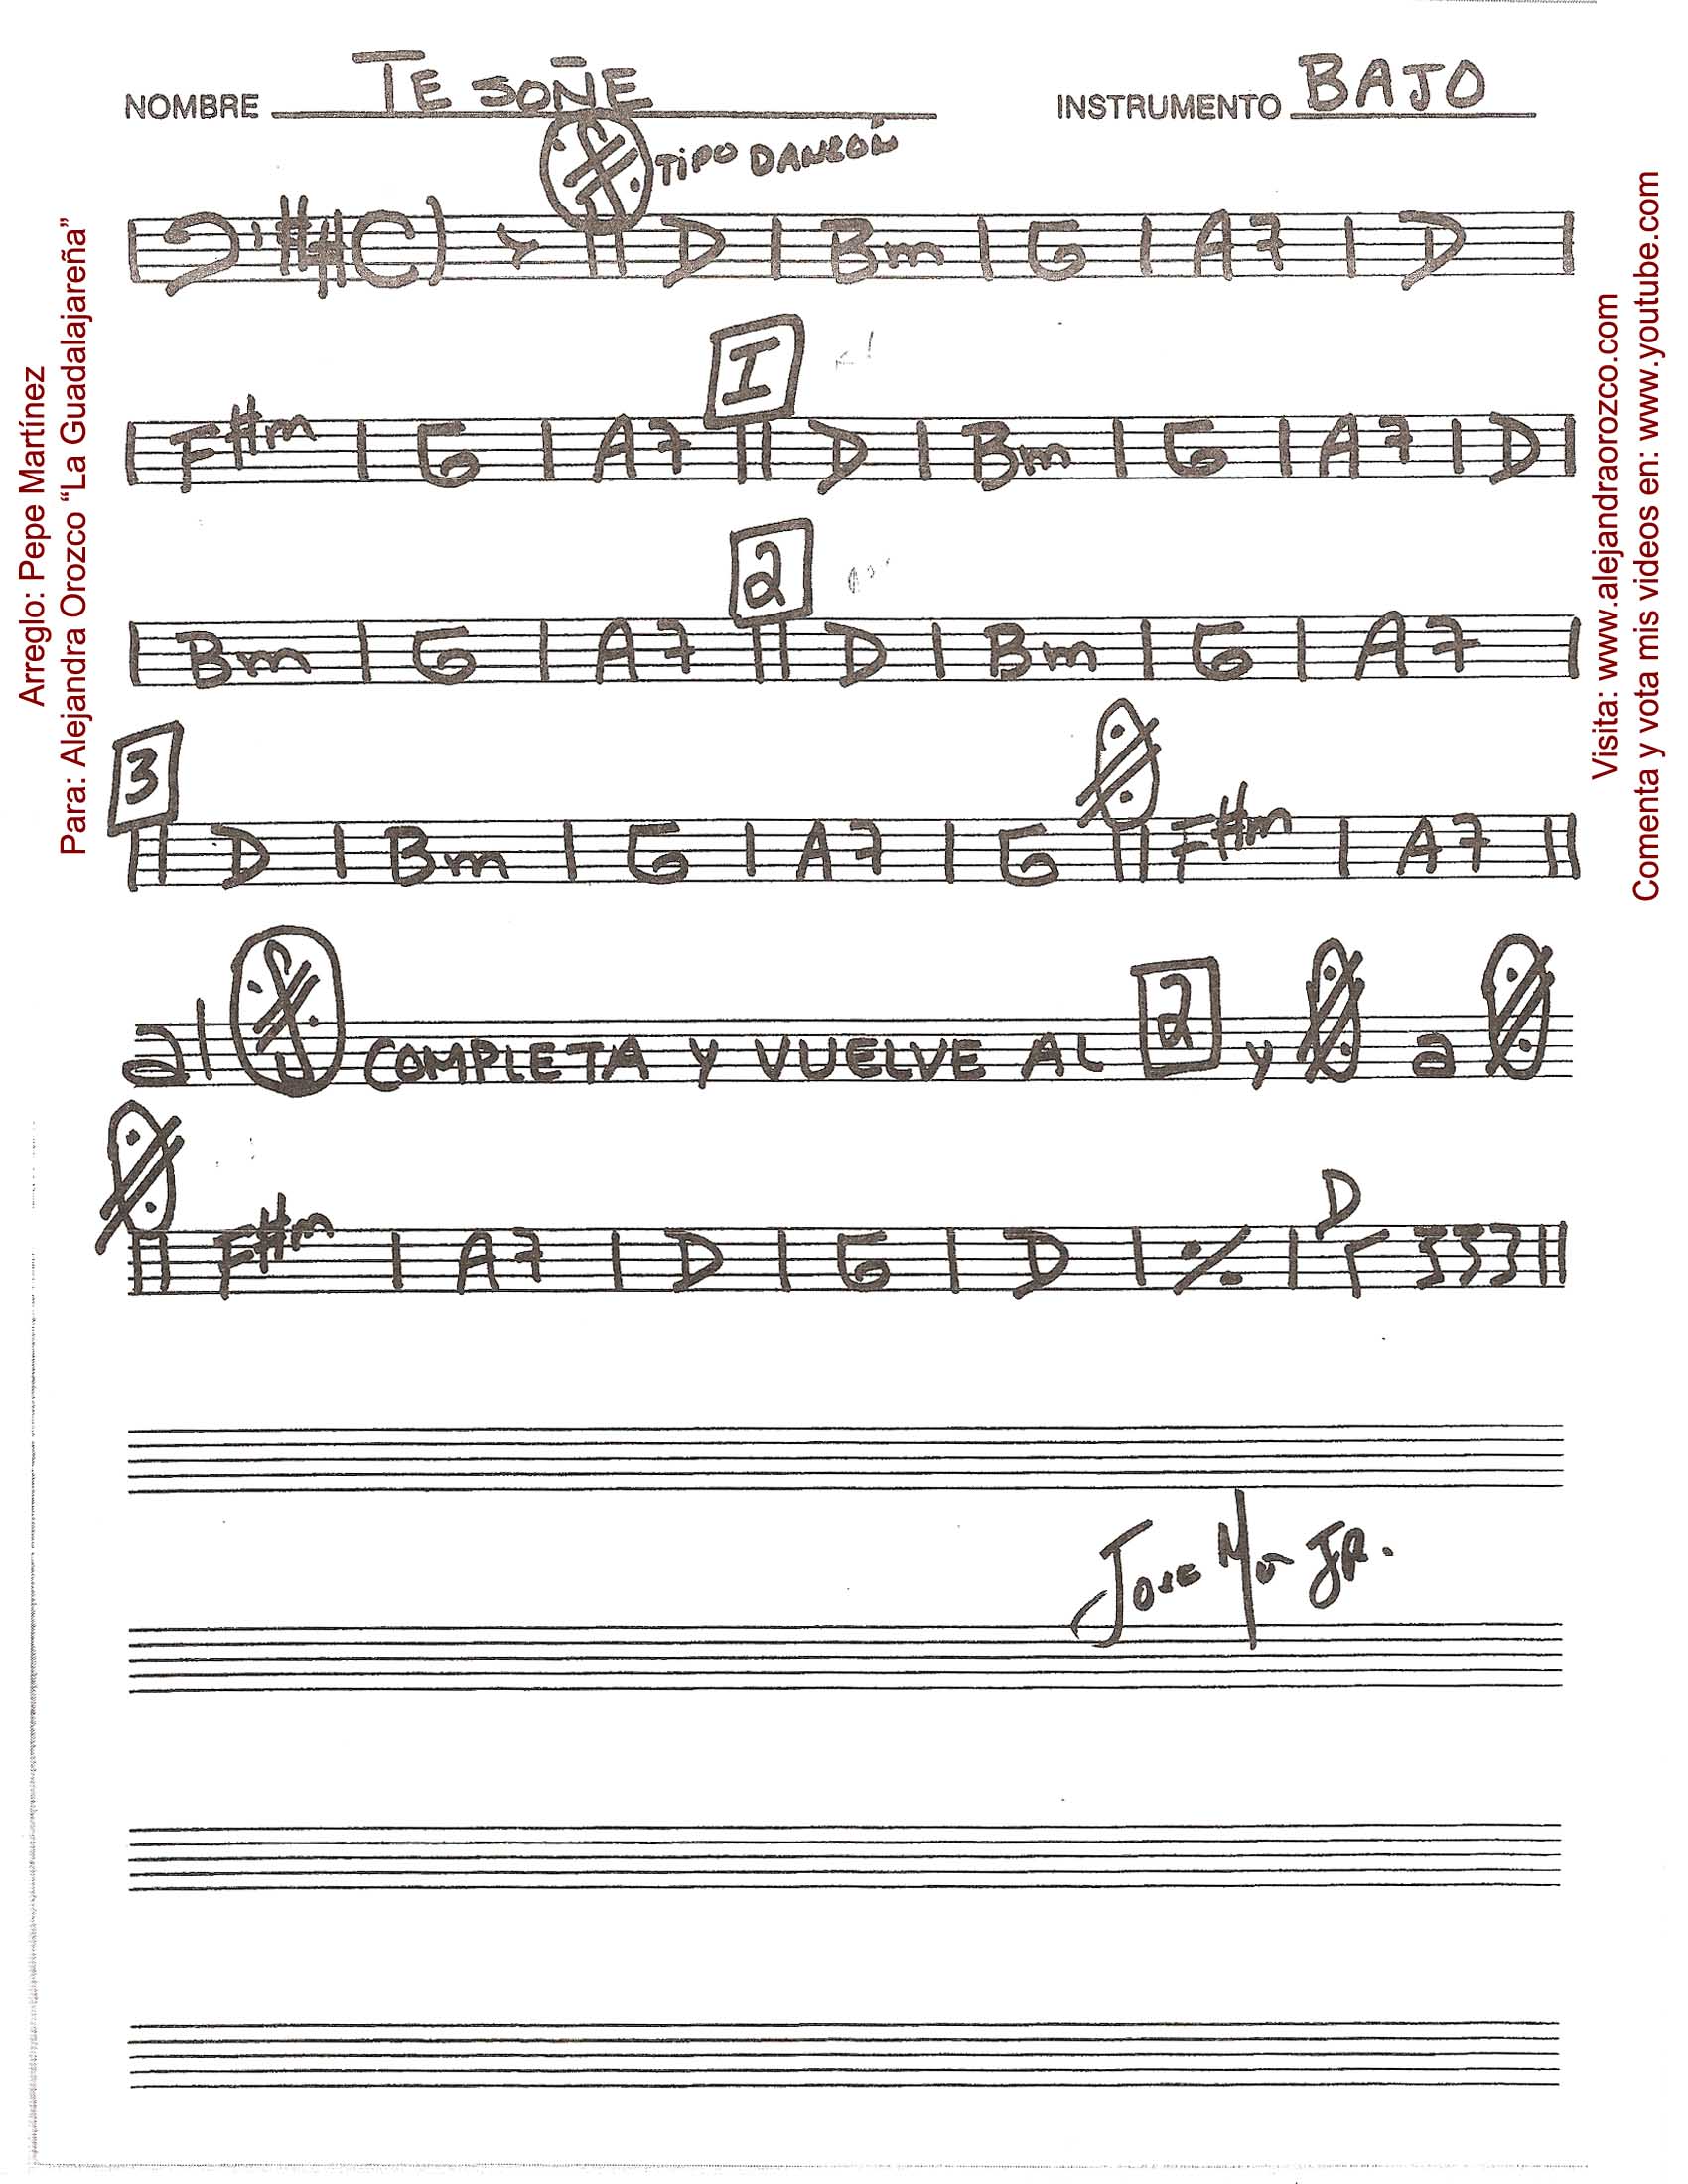 NOMBRE TE SOÑE INSTRUMENTO BAJO
TIPO DANZÓN
C) D | Bm | G | A7 | D |
I
| F#m | G | A7 || D | Bm | G | A7 | D |
2
| Bm | G | A7 || D | Bm | G | A7 |
3
|| D | Bm | G | A7 | G || F#m | A7 ||
al COMPLETA Y VUELVE AL 2 y a
D
|| F#m | A7 | D | G | D | % | ||
JOSE JR.
Arreglo: Pepe Martínez
Para: Alejandra Orozco “La Guadalajareña”
Visita: www.alejandraorozco.com
Comenta y vota mis videos en: www.youtube.com